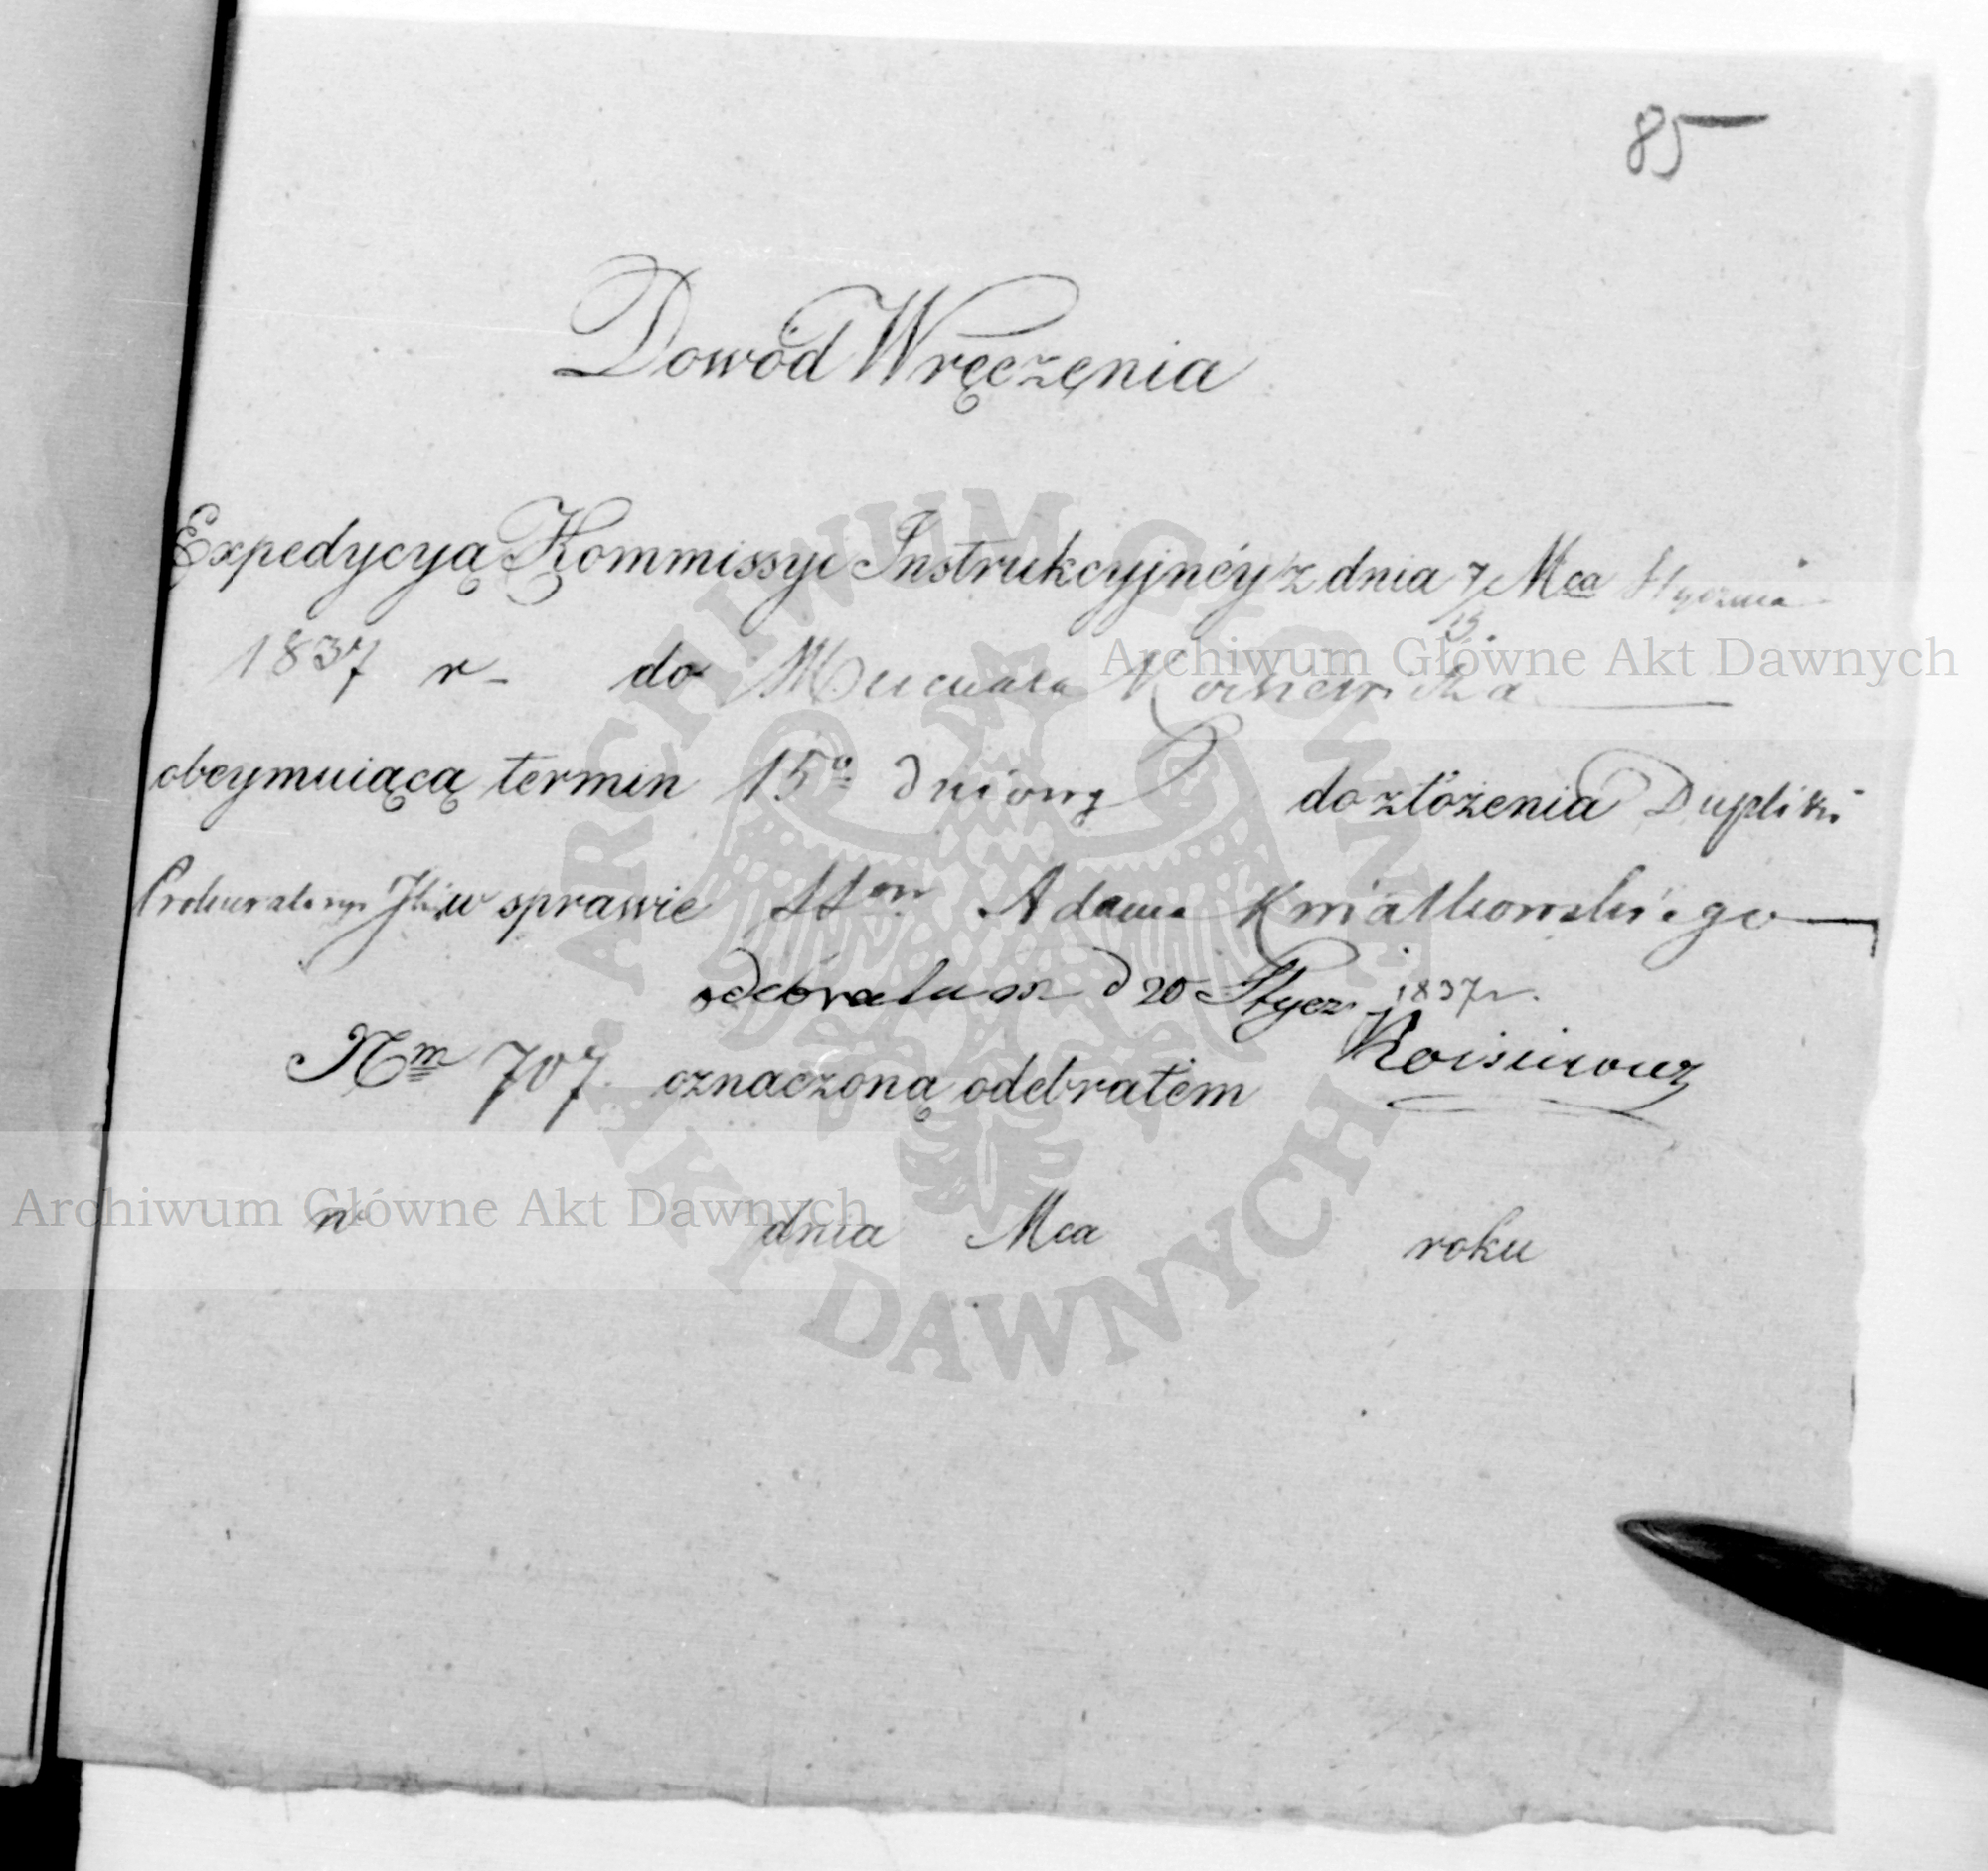 85
Dowód Wręczęnia
Expedycyą Kommissyi Instrukcyjnéy z dnia 7/19 Mca Stycznia
1837 r do Mecenasa
obeymuiącą termin 15o dniowy do złożenia Dupliki
w sprawie Adama Kwiatkowskiego
odebrałem d 20 Stycz 1837 r.
Nm 707. oznaczoną odebrałem
w dnia Mca roku
Archiwum Główne Akt Dawnych
Archiwum Główne Akt Dawnych
ARCHIWUM GŁÓWNE AKT DAWNYCH